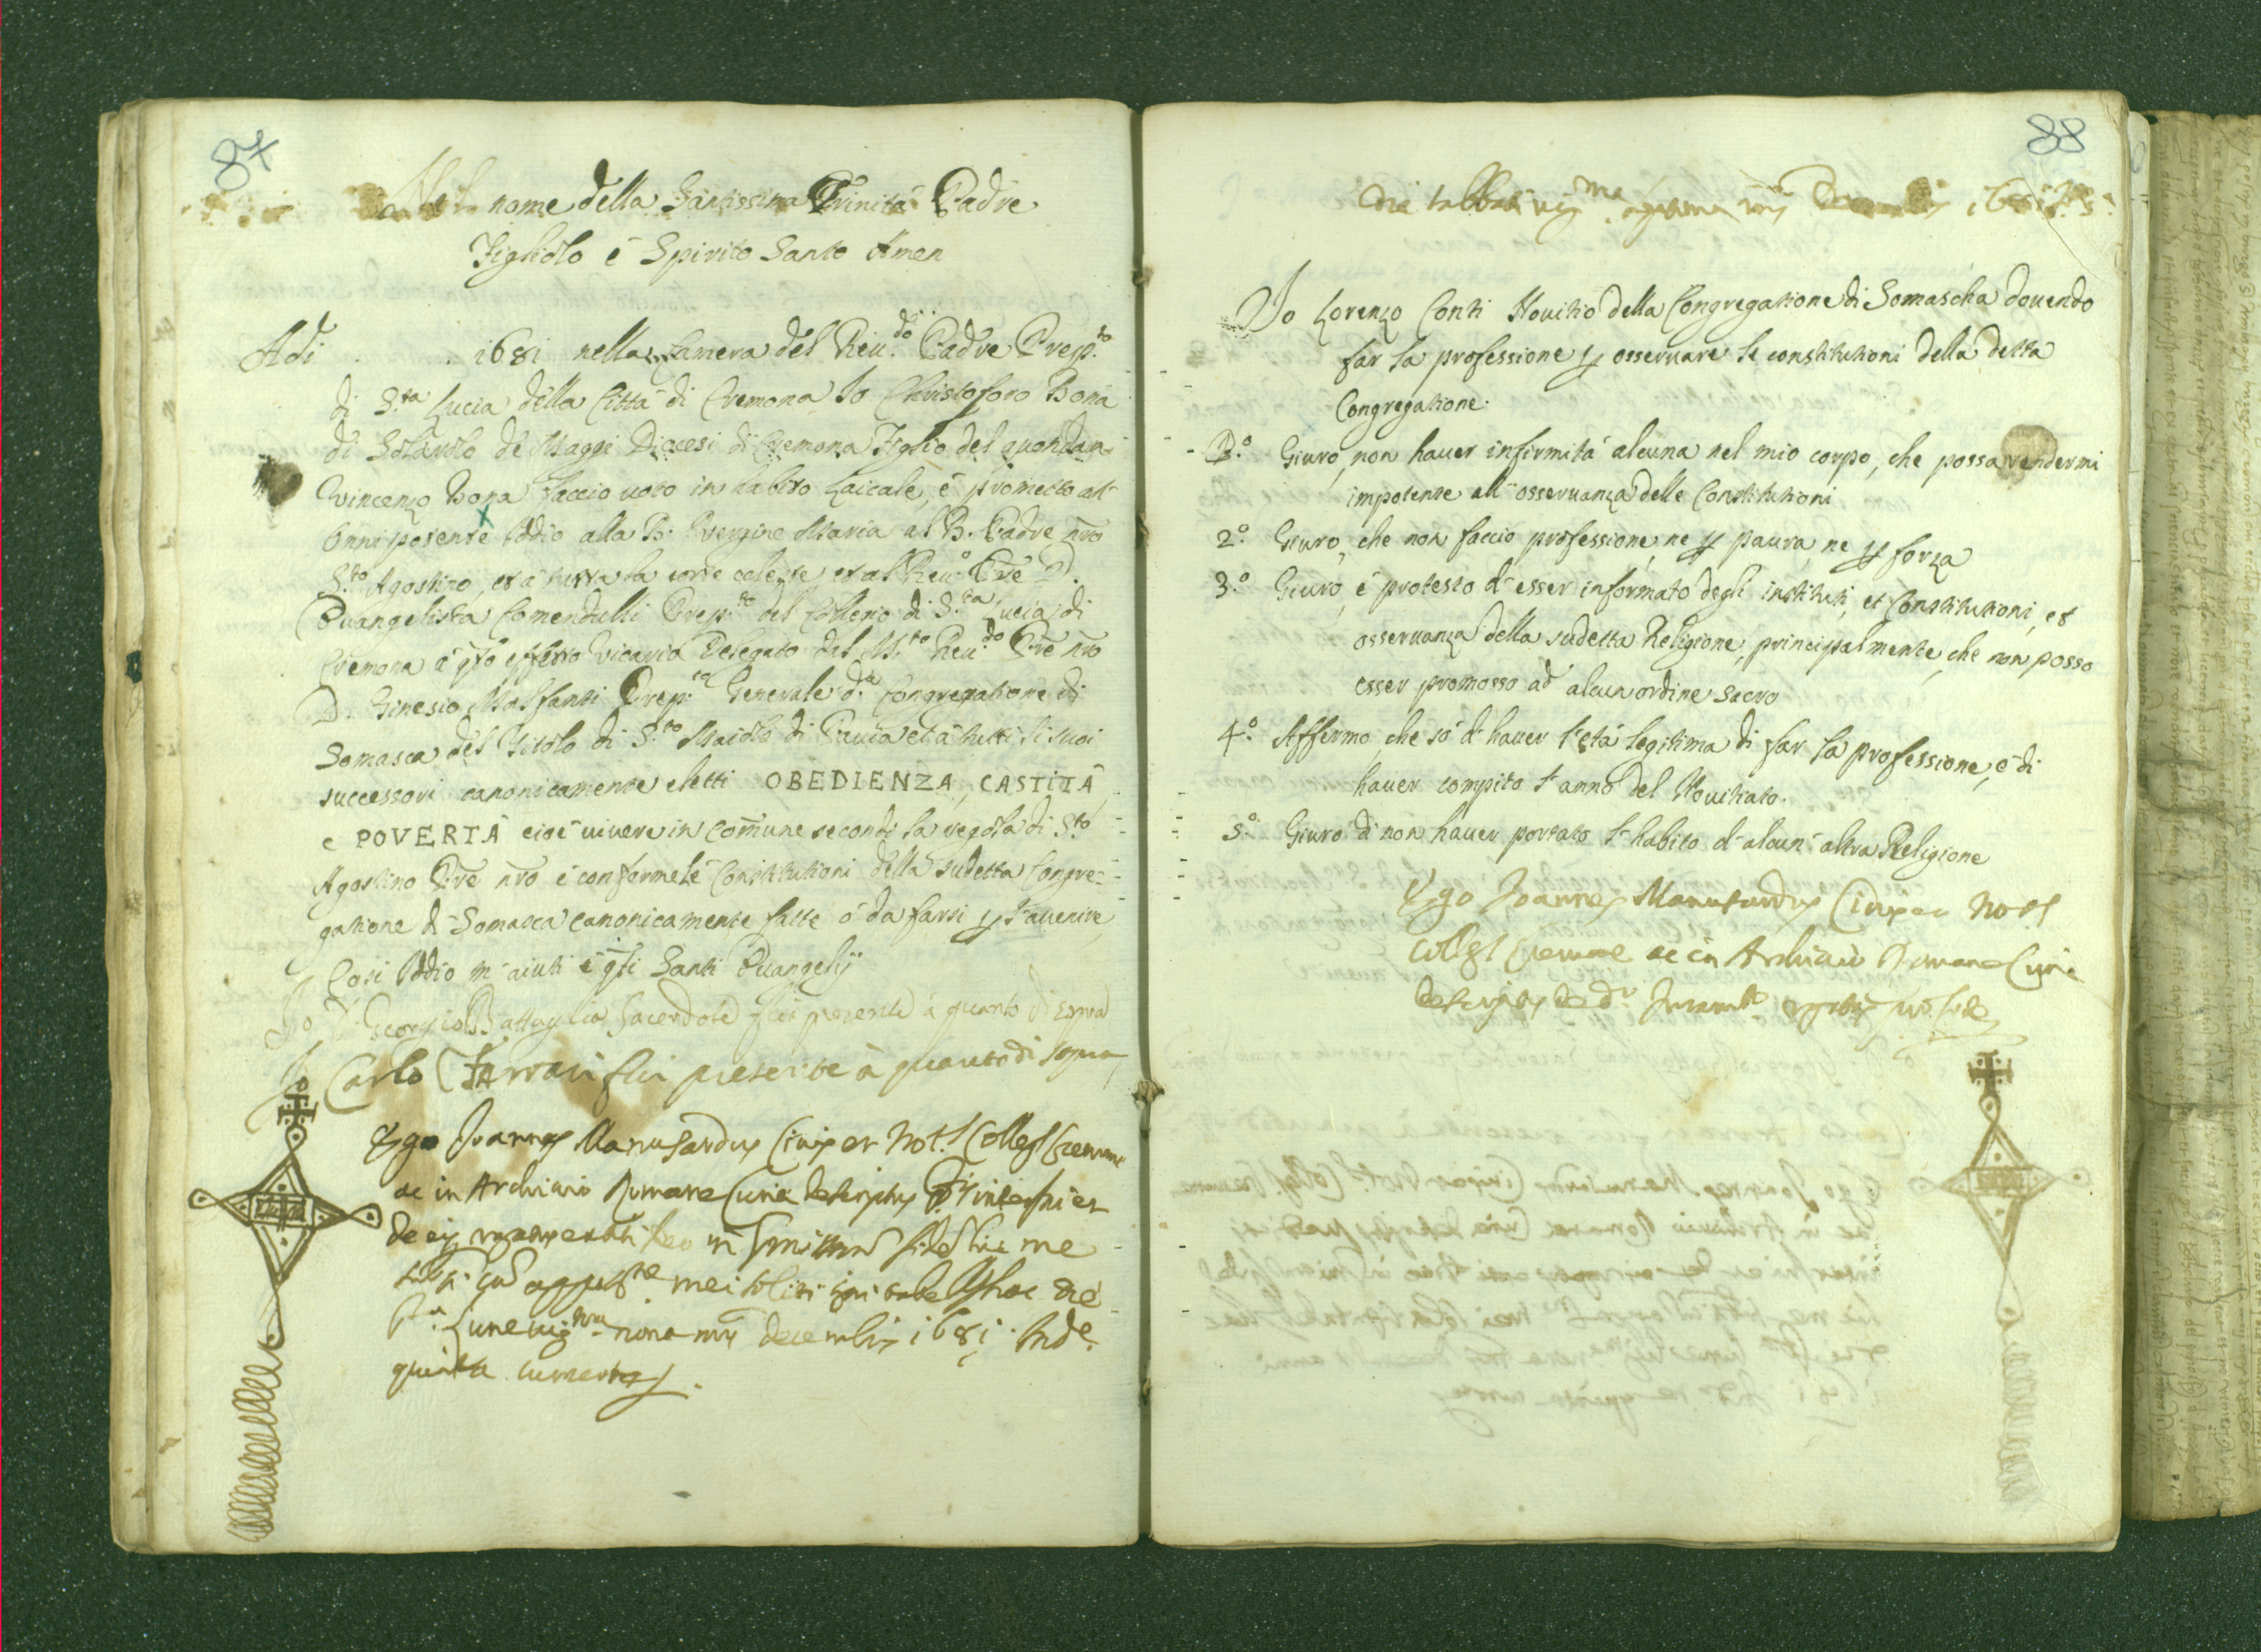 87
Nel nome della Santissima Trinità Padre
Figliolo è Spirito Santo Amen
Adi . . 1681 nella Camera del Reu.do Padre Prep.to
di S.ta Lucia della Città di Cremona Io Christoforo Bona
di Solarolo de Maggi Diocesi di Cremona Figlio del quondam
Vincenzo Bona faccio uoto in habito Laicale, è prometto all'
Onnipotente Iddio alla B. Vergine Maria al B. Padre nro
S.to Agostino, et à tutta la corte celeste et al Reu.o Pre D.
Euangelista Comendulli Prep.to del Colleggio di S.ta Lucia di
Cremona à qto effetto Vicario Delegato dal M.to Reu.do Pre nro
D. Ginesio Malfanti Prep.to Generale d.a Congregatione di
Somasca del Titolo di S.to Maiolo di Pauia et à tutti li suoi
successori canonicamente eletti OBEDIENZA, CASTITÀ,
e POVERTÀ cioè uiuere in comune secondo la regola di S.to
Agostino Pre nro è conforme le Constitutioni della sudetta Congre-
gatione di Somasca canonicamente fatte ò da farsi p l'auenire,
Cosi Iddio m'aiuti è qsti Santi Euangelij
Io D. Georgio Battaglia Sacerdote fui presente à quanto di sopra
Io Carlo Ferrari fui presente à quanto di sopra
Ego Joannes Manusardus Ciuis et Not.s Colleg.s Cremone
ac in Archiuio Romane Curie descriptus
me
mei soliti
Lune uig.ma nona mis decembris 1681. Ind.e
quinta currente
88
Die Sabbati uig.ma septima mis Decembris 1681
Io Lorenzo Conti Nouitio della Congregatione di Somascha douendo
far la professione p osseruare le constitutioni della detta
Congregatione.
P.o Giuro, non hauer infirmità alcuna nel mio corpo, che possa rendermi
impotente all'osseruanza delle Constitutioni
2.o Giuro, che non faccio professione, ne p paura, ne p forza
3.o Giuro, è protesto d'esser informato degli instituti, et Constitutioni, et
osseruanza della sudetta Religione, principalmente, che non posso
esser promosso ad alcun ordine sacro
4.o Affermo, che sò d'hauer l'età legitima di far la professione, è di
hauer compito l'anno del Nouitiato.
5.o Giuro di non hauer portato l'habito d'alcun'altra Religione
Ego Joannes Manusardus Ciuis et Not.s
Colleg.s Cremone ac in Archiuio Romane Curie
descriptus de d.o Juram.to rogatus pro fide